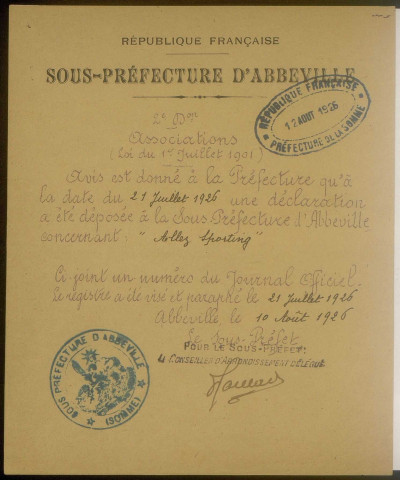 RÉPUBLIQUE FRANÇAISE
SOUS-PRÉFECTURE D'ABBEVILLE
RÉPUBLIQUE FRANÇAISE
12 AOUT 1926
PRÉFECTURE DE LA SOMME
2e Don
Associations
(Loi du 1er Juillet 1901)
Avis est donné à la Préfecture qu'à
la date du 21 Juillet 1926 une déclaration
a été déposée à la Sous-Préfecture d'Abbeville
concernant: "Allez Sporting"
Ci joint un numéro du Journal Officiel.
Le registre a été visé et paraphé le 21 Juillet 1926
Abbeville, le 10 Août 1926
Le Sous-Préfet
POUR LE SOUS-PRÉFET:
LE CONSEILLER D'ARRONDISSEMENT DÉLÉGUÉ
SOUS PRÉFECTURE D'ABBEVILLE
(SOMME)